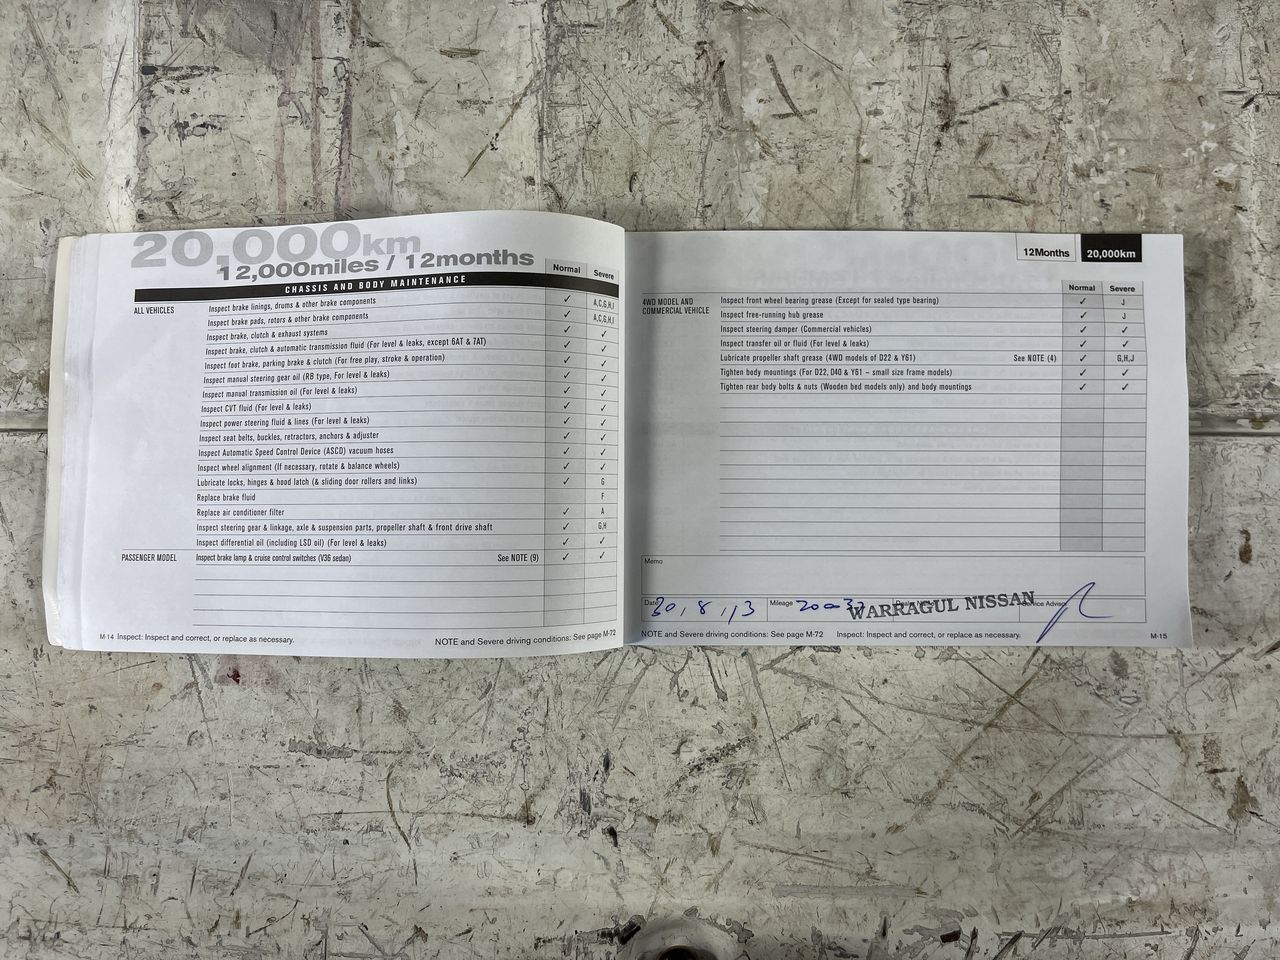 20,000km
12,000miles / 12months
CHASSIS AND BODY MAINTENANCE Normal Severe
ALL VEHICLES Inspect brake linings, drums & other brake components ✓ A,C,G,H,I
Inspect brake pads, rotors & other brake components ✓ A,C,G,H,I
Inspect brake, clutch & exhaust systems ✓ ✓
Inspect brake, clutch & automatic transmission fluid (For level & leaks, except 6AT & 7AT) ✓ ✓
Inspect foot brake, parking brake & clutch (For free play, stroke & operation) ✓ ✓
Inspect manual steering gear oil (RB type, For level & leaks) ✓ ✓
Inspect manual transmission oil (For level & leaks) ✓ ✓
Inspect CVT fluid (For level & leaks) ✓ ✓
Inspect power steering fluid & lines (For level & leaks) ✓ ✓
Inspect seat belts, buckles, retractors, anchors & adjuster ✓ ✓
Inspect Automatic Speed Control Device (ASCD) vacuum hoses ✓ ✓
Inspect wheel alignment (If necessary, rotate & balance wheels) ✓ ✓
Lubricate locks, hinges & hood latch (& sliding door rollers and links) ✓ G
Replace brake fluid F
Replace air conditioner filter ✓ A
Inspect steering gear & linkage, axle & suspension parts, propeller shaft & front drive shaft ✓ G,H
Inspect differential oil (including LSD oil) (For level & leaks) ✓ ✓
PASSENGER MODEL Inspect brake lamp & cruise control switches (V36 sedan) See NOTE (9) ✓ ✓
M-14 Inspect: Inspect and correct, or replace as necessary. NOTE and Severe driving conditions: See page M-72
12Months 20,000km
Normal Severe
4WD MODEL AND COMMERCIAL VEHICLE Inspect front wheel bearing grease (Except for sealed type bearing) ✓ J
Inspect free-running hub grease ✓ J
Inspect steering damper (Commercial vehicles) ✓ ✓
Inspect transfer oil or fluid (For level & leaks) ✓ ✓
Lubricate propeller shaft grease (4WD models of D22 & Y61) See NOTE (4) ✓ G,H,J
Tighten body mountings (For D22, D40 & Y61 – small size frame models) ✓ ✓
Tighten rear body bolts & nuts (Wooden bed models only) and body mountings ✓ ✓
Memo
Date 30,8,13 Mileage 20037 WARRAGUL NISSAN Service Advisor
NOTE and Severe driving conditions: See page M-72 Inspect: Inspect and correct, or replace as necessary. M-15